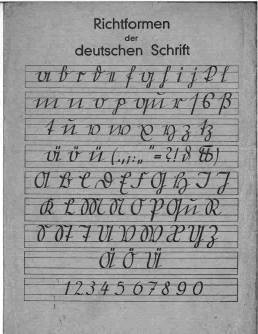 Richtformen
der
deutschen Schrift
a b c d e f g h i j k l
m n o p q u r ſ s ß
t u v w x y z tz
ä ö ü ( . , ; : „ " = ? ! )
A B C D E F G H I J
K L M N O P Qu R
S St T U V W X Y Z
Ä Ö Ü
1 2 3 4 5 6 7 8 9 0